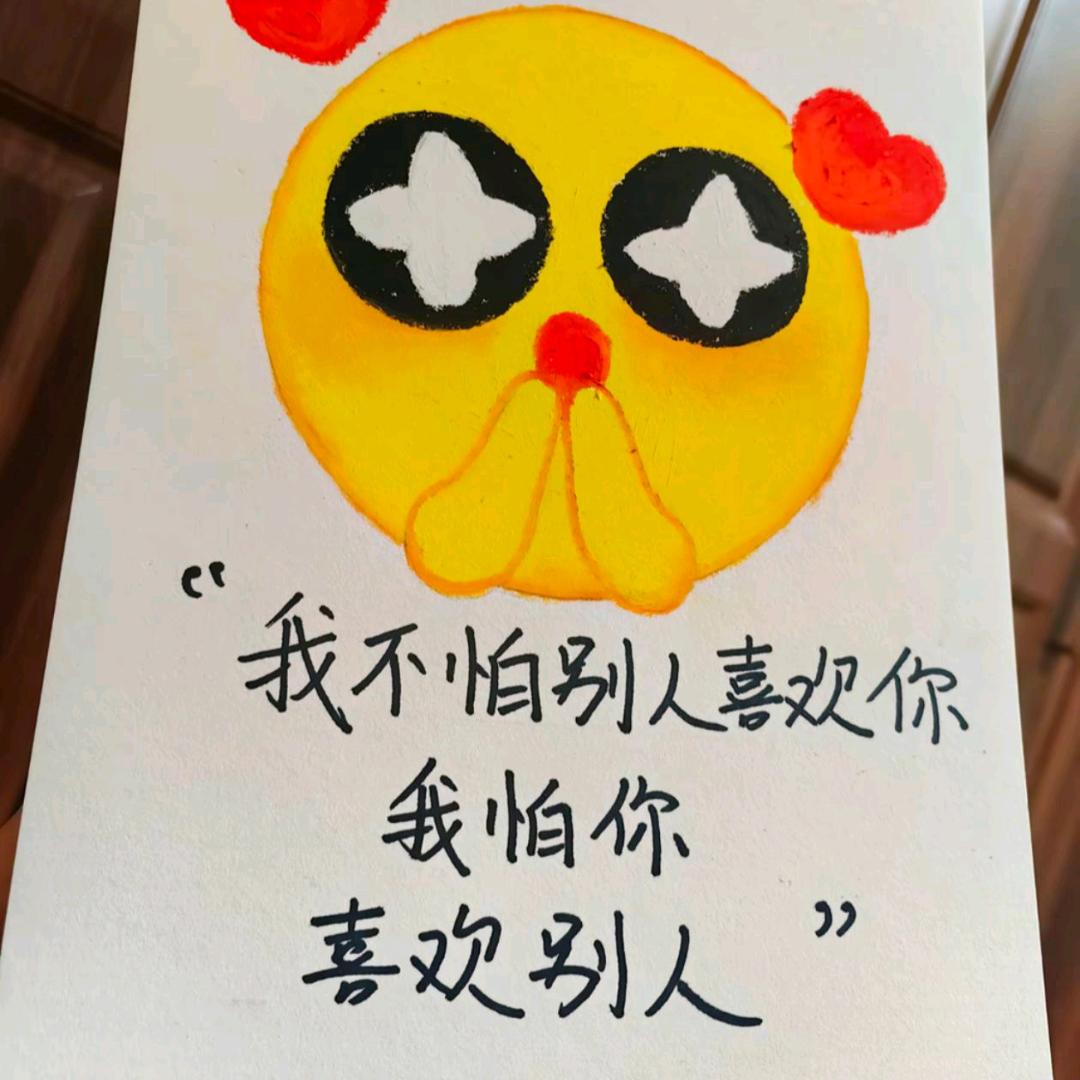 “我不怕别人喜欢你
我怕你
喜欢别人”